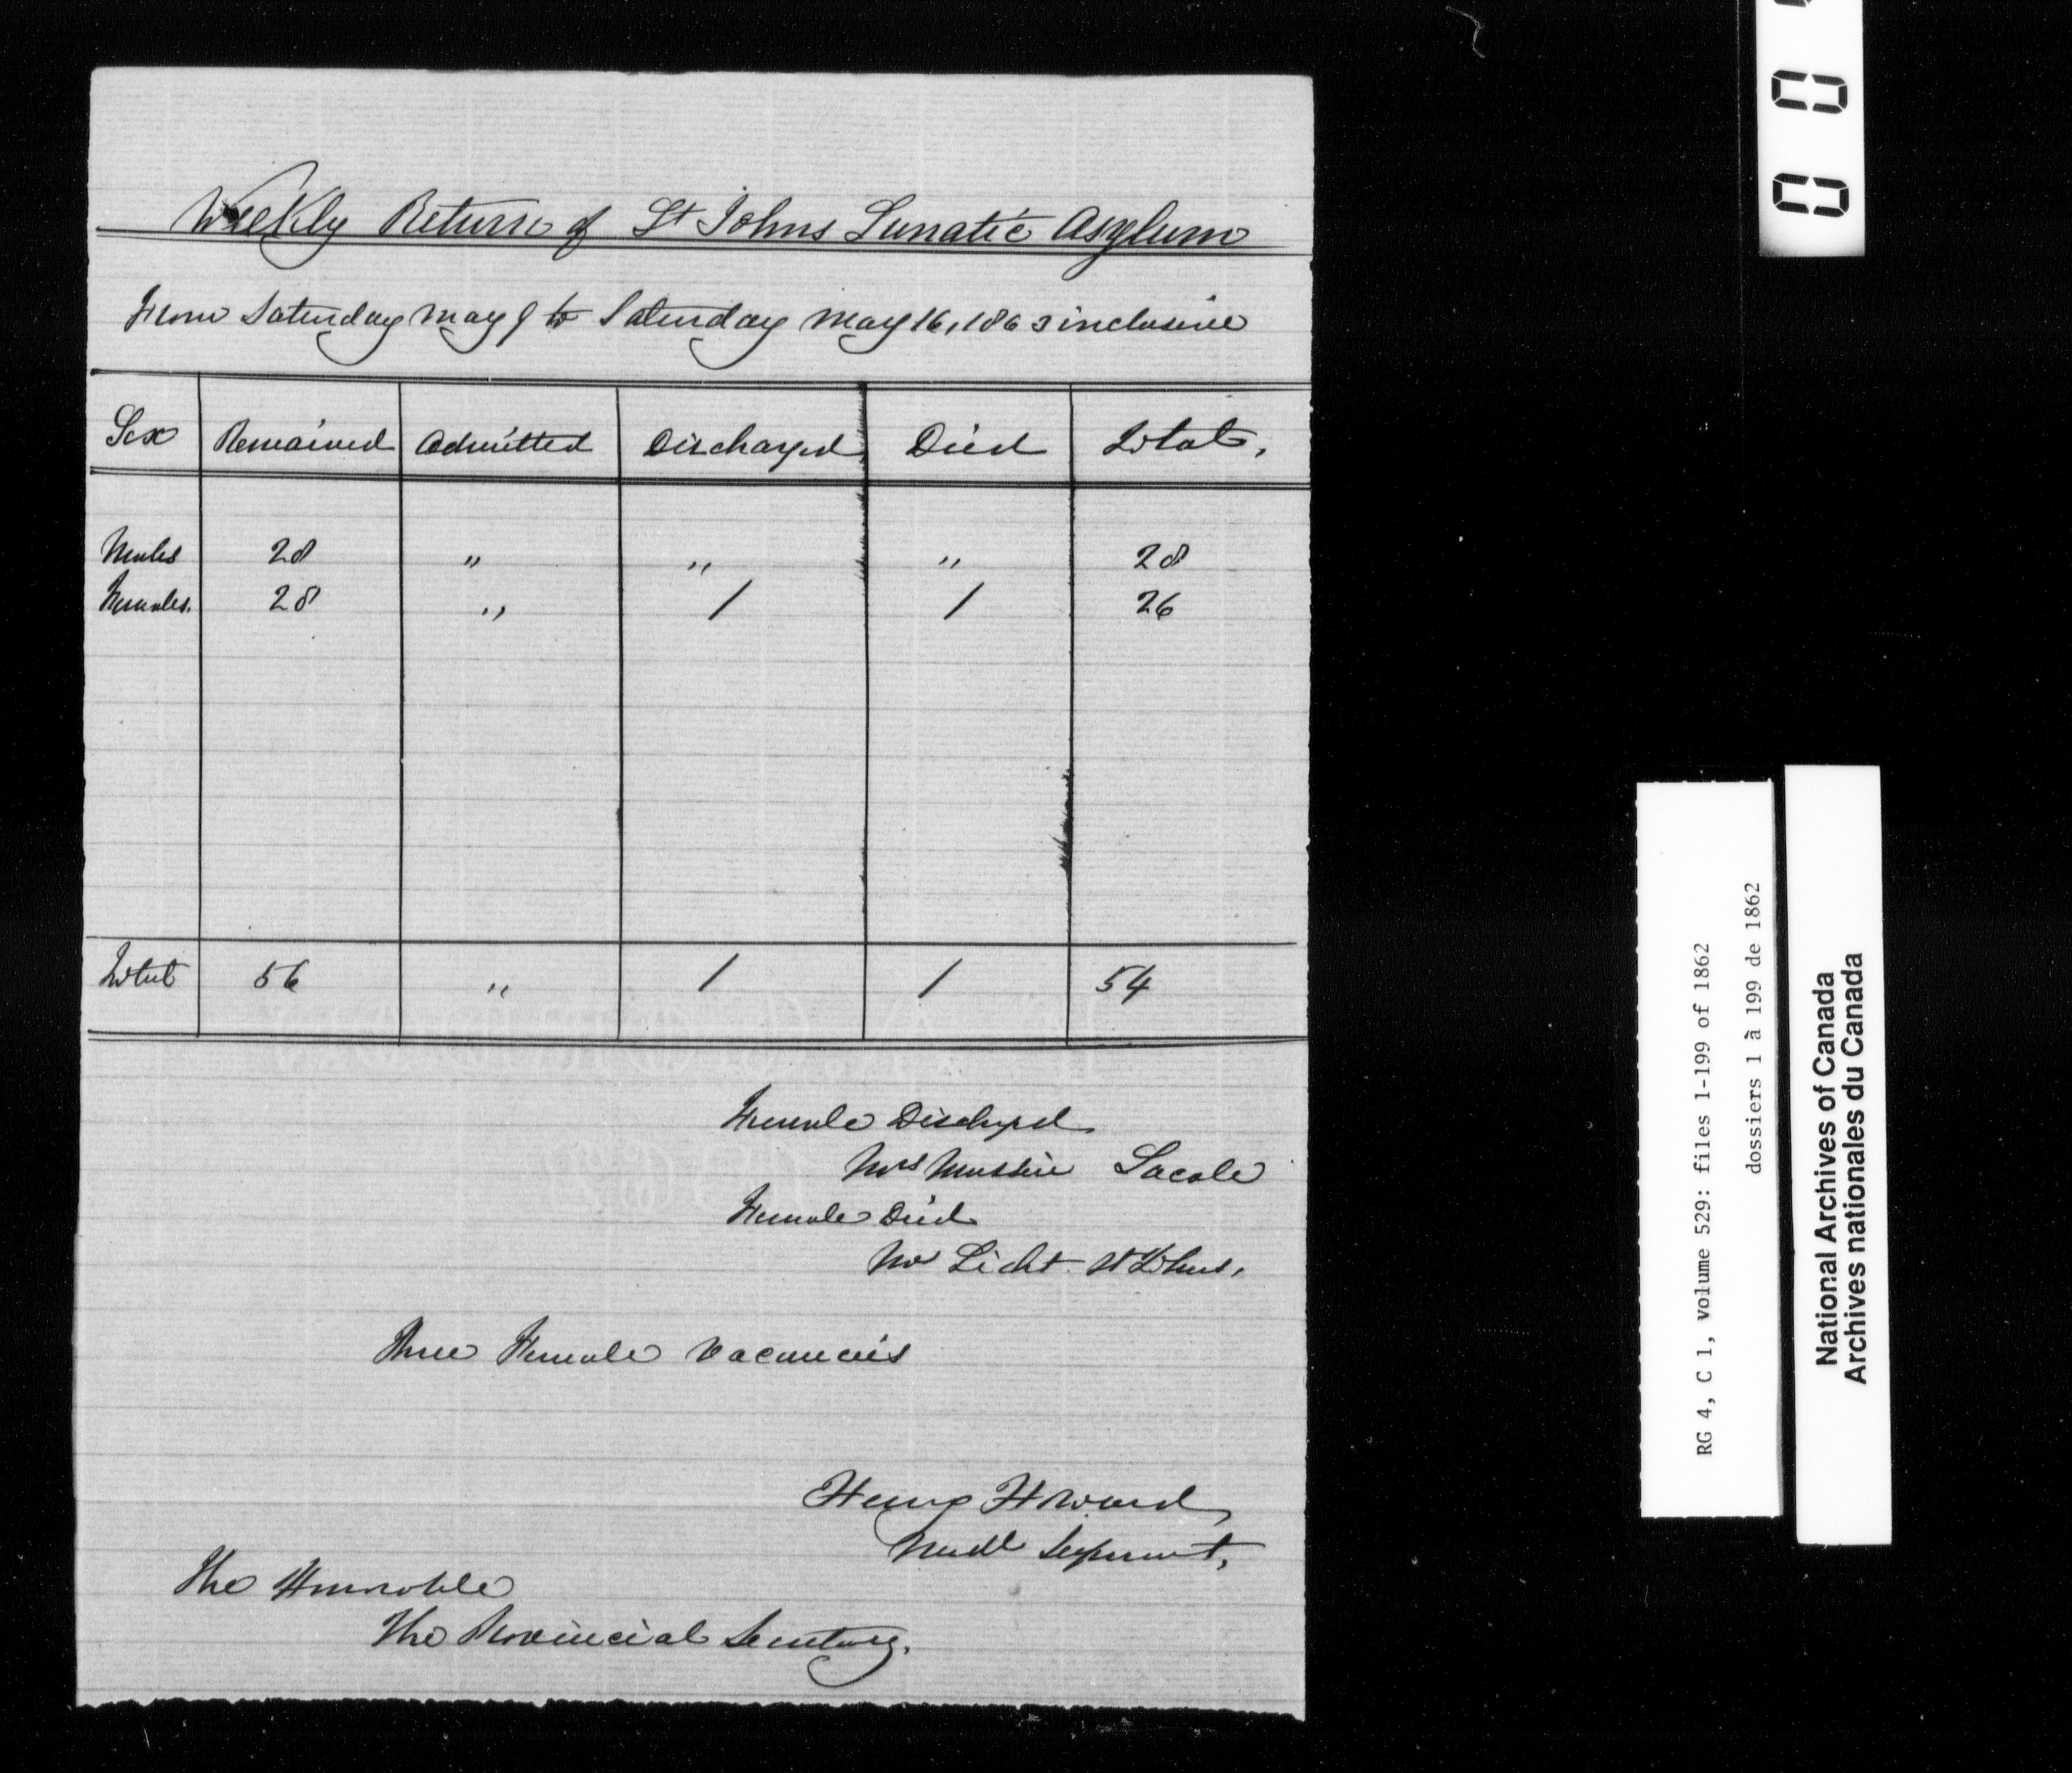 Weekly Return of St Johns Lunatic Asylum
From Saturday May 9 to Saturday May 16, 1863 inclusive
Sex Remained Admitted Discharged Died Total,
Males 28 " " " 28
Females. 28 " 1 1 26
Total 56 " 1 1 54
Female Dischgd
Mrs Lacole
Female Died
Mrs Licht St Johns,
Three Female Vacancies
Henry Howard,
Medl Superint,
The Honorable
The Provincial Secretary.
RG 4, C 1, volume 529: files 1-199 of 1862
dossiers 1 à 199 de 1862
National Archives of Canada
Archives nationales du Canada
0 0